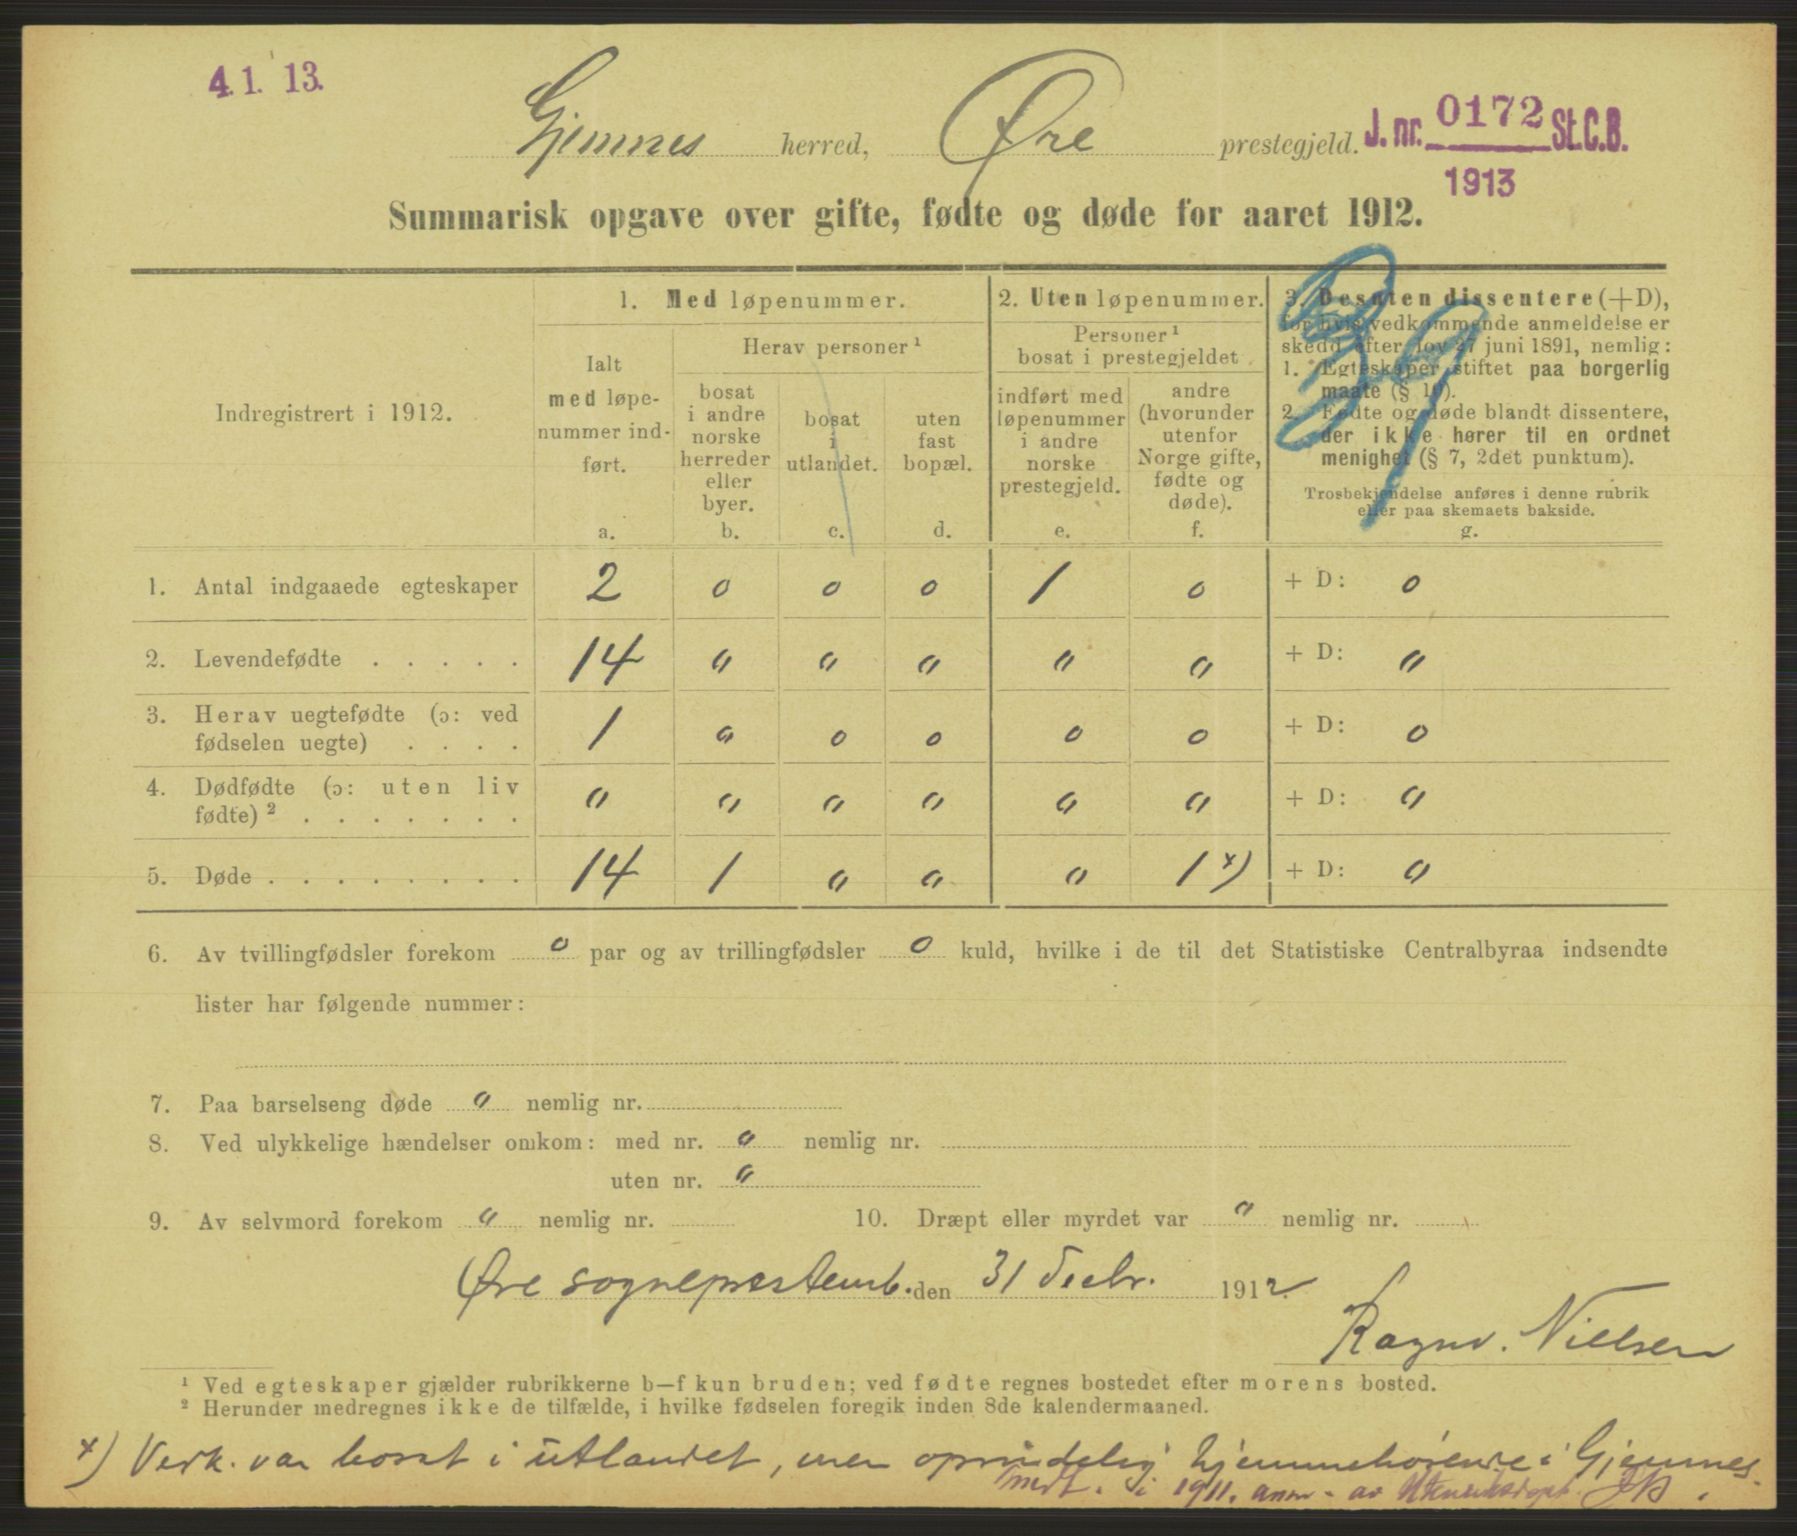 4.1.13.
Gjemnes herred, Øre prestegjeld. J. nr. 0172 St.C.B.
1913
Summarisk opgave over gifte, fødte og døde for aaret 1912.
Indregistrert i 1912.
1. Med løpenummer.
Ialt
med løpe-
nummer ind-
ført.
a.
Herav personer ¹
bosat
i andre
norske
herreder
eller
byer.
b.
bosat
i
utlandet.
c.
uten
fast
bopæl.
d.
2. Uten løpenummer.
Personer ¹
bosat i prestegjeldet
indført med
løpenummer
i andre
norske
prestegjeld.
e.
andre
(hvorunder
utenfor
Norge gifte,
fødte og
døde).
f.
3. Desuten dissentere (+D),
for hvis vedkommende anmeldelse er
skedd efter lov 27 juni 1891, nemlig:
1. Egteskaper stiftet paa borgerlig
maate (§ 10).
2. Fødte og døde blandt dissentere,
der ikke hører til en ordnet
menighet (§ 7, 2det punktum).
Trosbekjendelse anføres i denne rubrik
eller paa skemaets bakside.
g.
1. Antal indgaaede egteskaper 2 0 0 0 1 0 + D: 0
2. Levendefødte . . . . . 14 " " " " " + D: "
3. Herav uegtefødte (ɔ: ved
fødselen uegte) . . . . 1 " 0 0 0 0 + D: 0
4. Dødfødte (ɔ: uten liv
fødte) ² . . . . . . . " " " " " " + D: "
5. Døde . . . . . . . . 14 1 " " " 1 x) + D: "
6. Av tvillingfødsler forekom 0 par og av trillingfødsler 0 kuld, hvilke i de til det Statistiske Centralbyraa indsendte
lister har følgende nummer:
7. Paa barselseng døde " nemlig nr.
8. Ved ulykkelige hændelser omkom: med nr. " nemlig nr.
uten nr. "
9. Av selvmord forekom " nemlig nr. 10. Dræpt eller myrdet var " nemlig nr.
Øre sogneprestemb. den 31 Decbr. 1912.
Ragnv. Nielsen
¹ Ved egteskaper gjælder rubrikkerne b—f kun bruden; ved fødte regnes bostedet efter morens bosted.
² Herunder medregnes ikke de tilfælde, i hvilke fødselen foregik inden 8de kalendermaaned.
x) Vedk. var bosat i utlandet, men oprindelig hjemmehørende i Gjemnes.
medt. i 1911. anm. av Utenriksdept.